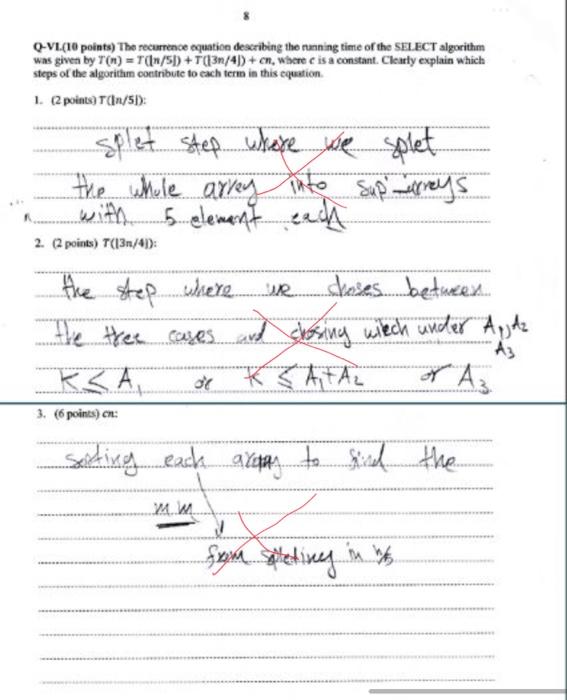 8
Q-VI.(10 points) The recurrence equation describing the running time of the SELECT algorithm
was given by T(n) = T(⌊n/5⌋) + T(⌊3n/4⌋) + cn, where c is a constant. Clearly explain which
steps of the algorithm contribute to each term in this equation.
1. (2 points) T(⌊n/5⌋):
splet step where we splet
the whole arrey into sup-arreys
with 5 element each
2. (2 points) T(⌊3n/4⌋):
the step where we choses between
the tree cases and chosing wiech under A₁, A₂
A₃
K ≤ A₁ or K ≤ A₁+A₂ or A₃
3. (6 points) cn:
sorting each array to find the
m.m
from spleting in n/5